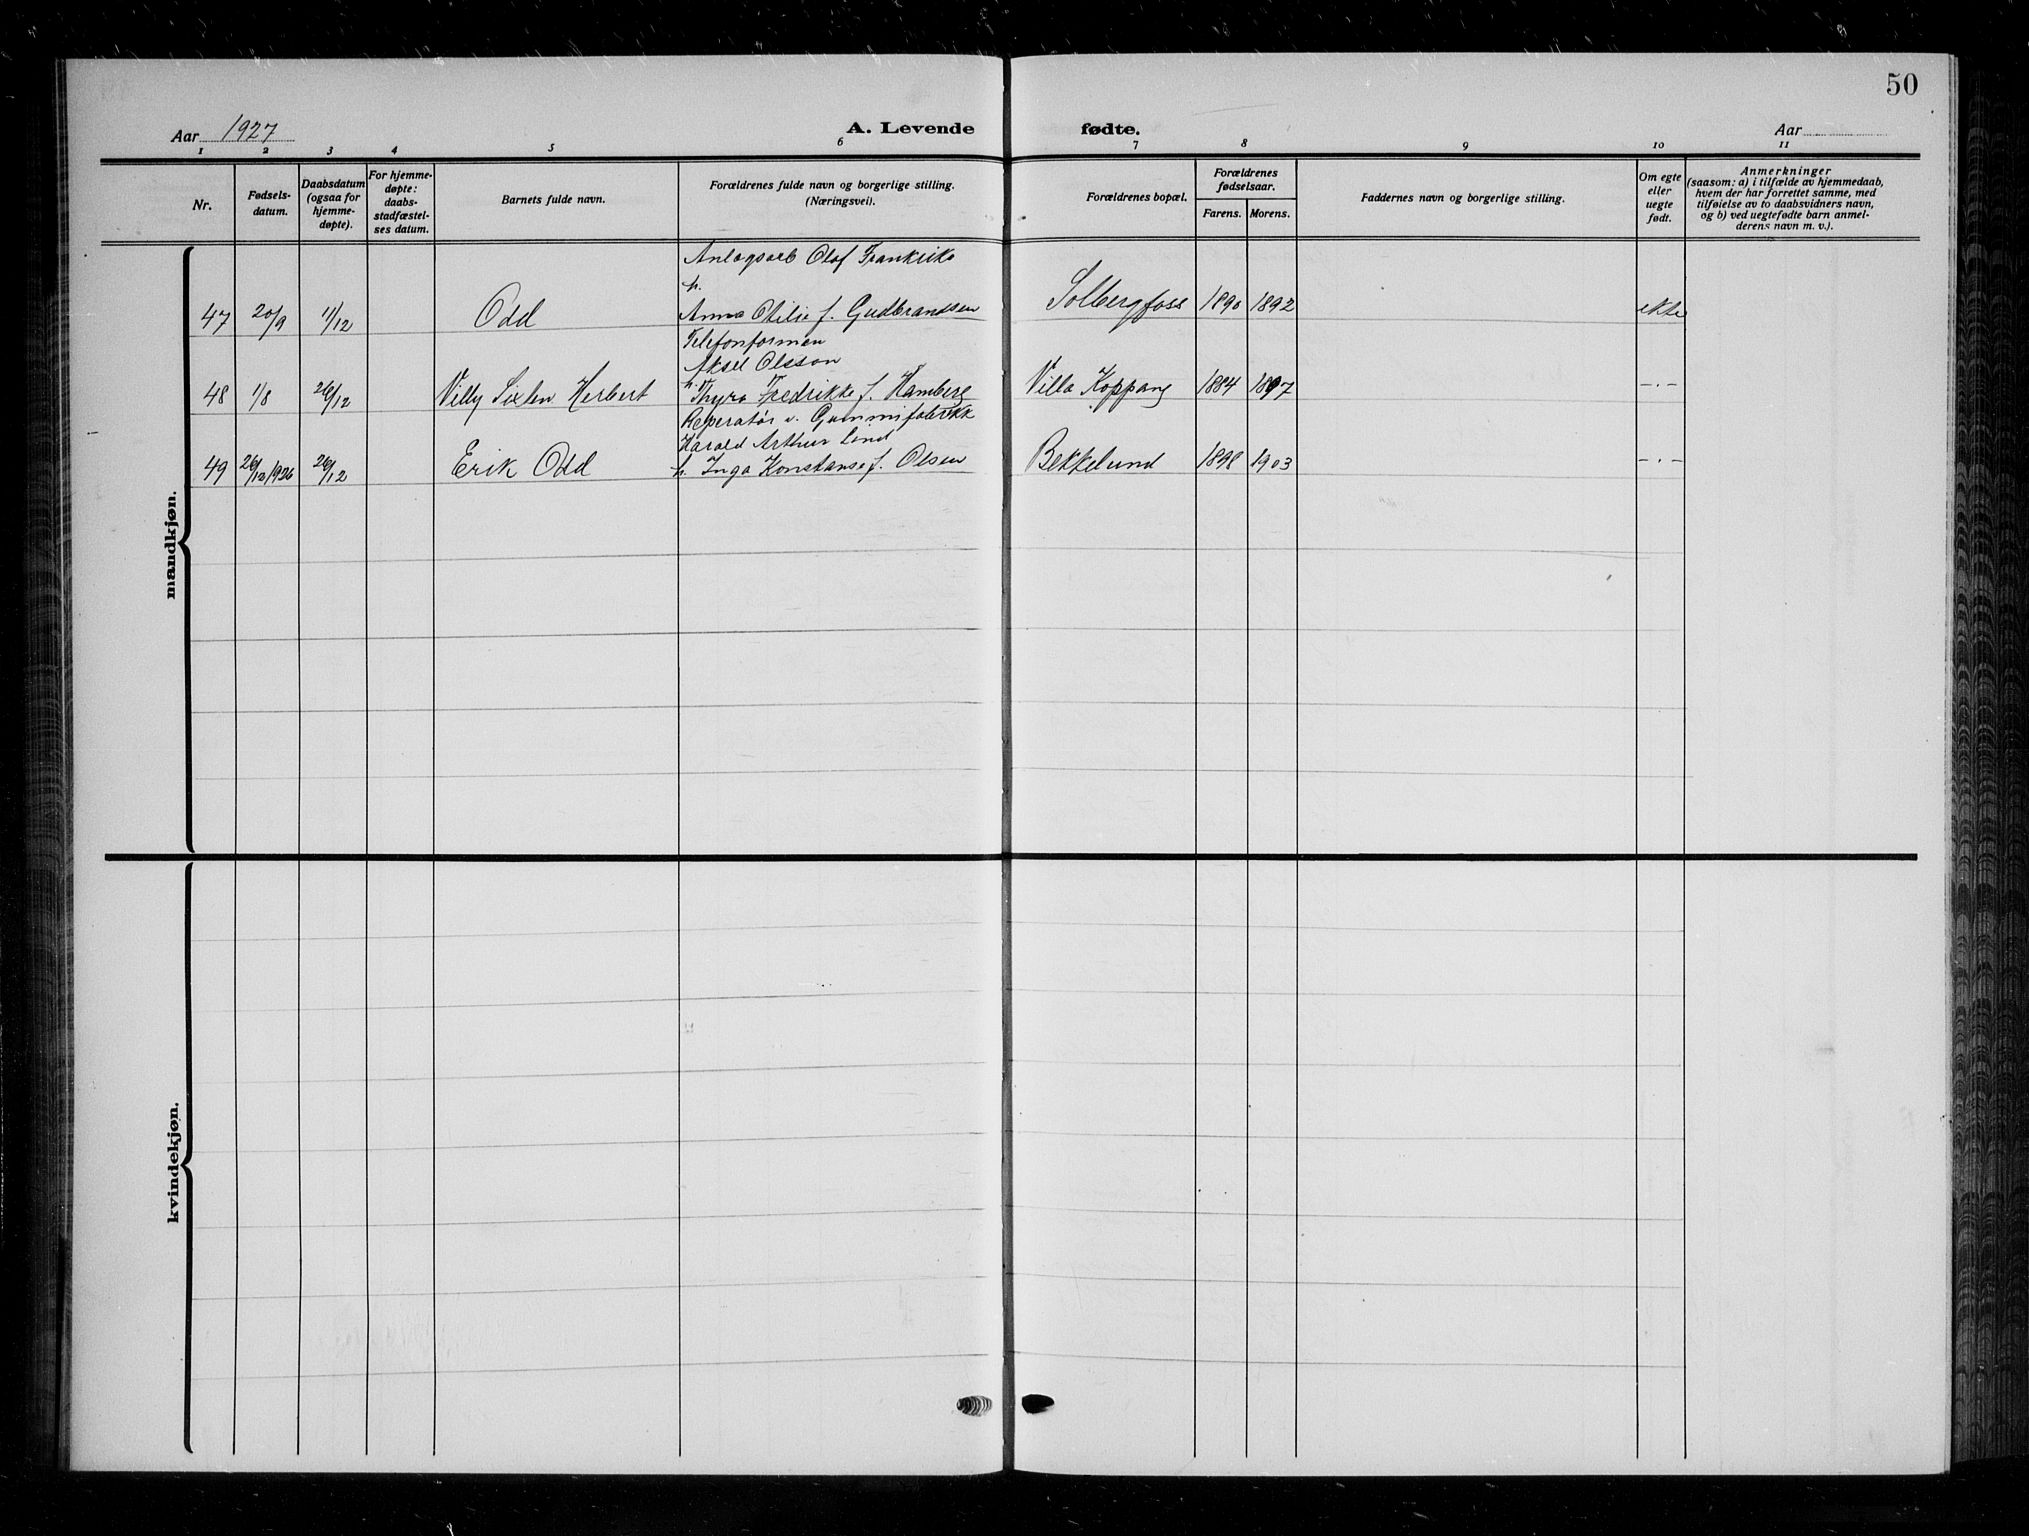 50
Aar 1927
A. Levende
fødte.
Aar
1 2 3 4 5 6 7 8 9 10 11
Nr.
Fødsels-
datum.
Daabsdatum
(ogsaa for
hjemme-
døpte).
For hjemme-
døpte:
daabs-
stadfæstel-
ses datum.
Barnets fulde navn.
Forældrenes fulde navn og borgerlige stilling.
(Næringsvei).
Forældrenes bopæl.
Forældrenes
fødselsaar.
Farens. Morens.
Faddernes navn og borgerlige stilling.
Om egte
eller
uegte
født.
Anmerkninger
(saasom: a) i tilfælde av hjemmedaab,
hvem der har forrettet samme, med
tilføielse av to daabsvidners navn,
og b) ved uegtefødte barn anmel-
derens navn m. v.).
mandkjøn.
Anlægsarb Olof Frankrike
h.
47 20/9 11/12 Odd Anna Otilie f. Gudbrandsen Solbergfoss 1890 1892 ekte
Telefonforman
Aksel Olsson
48 1/8 26/12 Villy Sixten Herbert h. Thyra Fredrikke f. Hamberg Villa Koppang 1884 1897 -"-
Reperatør v. Gummifabrikk
Harald Arthur Lind
49 26/12 1926 26/12 Erik Odd h. Inga Konstanse f. Olsen Bekkelund 1898 1903 -"-
kvindekjøn.